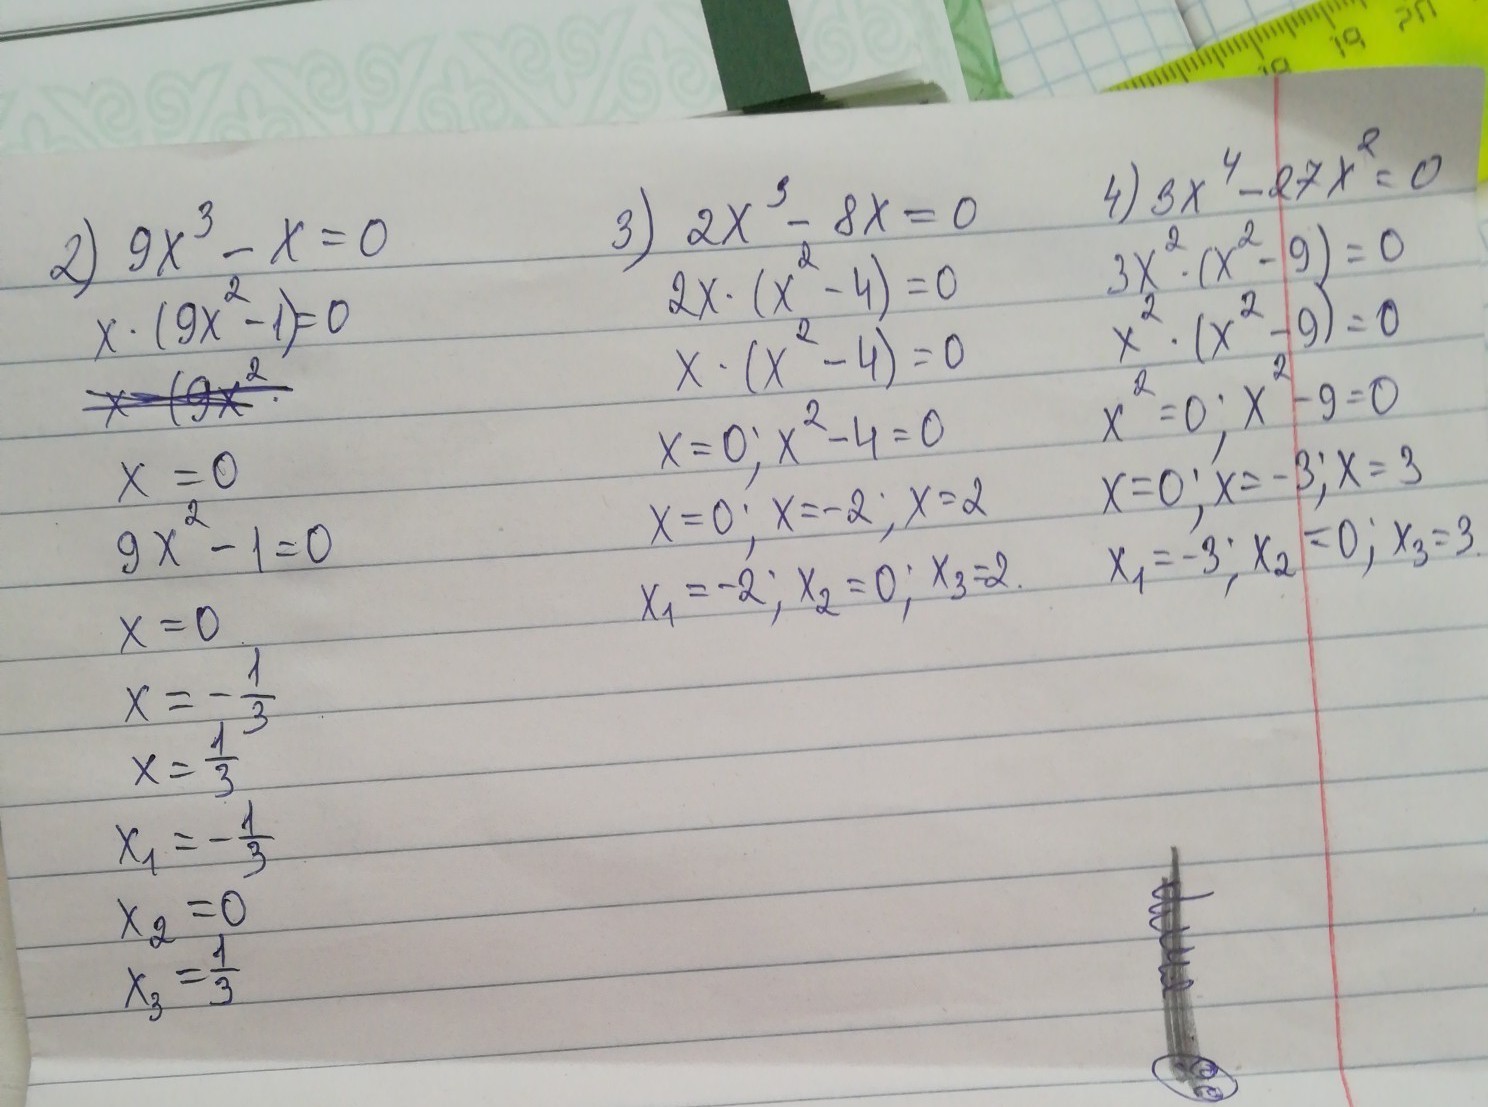 2) 9x³ - x = 0
x · (9x² - 1) = 0
x = 0
9x² - 1 = 0
x = 0
x = -1/3
x = 1/3
x₁ = -1/3
x₂ = 0
x₃ = 1/3
3) 2x³ - 8x = 0
2x · (x² - 4) = 0
x · (x² - 4) = 0
x = 0; x² - 4 = 0
x = 0; x = -2; x = 2
x₁ = -2; x₂ = 0; x₃ = 2.
4) 3x⁴ - 27x² = 0
3x² · (x² - 9) = 0
x² · (x² - 9) = 0
x² = 0; x² - 9 = 0
x = 0; x = -3; x = 3
x₁ = -3; x₂ = 0; x₃ = 3.